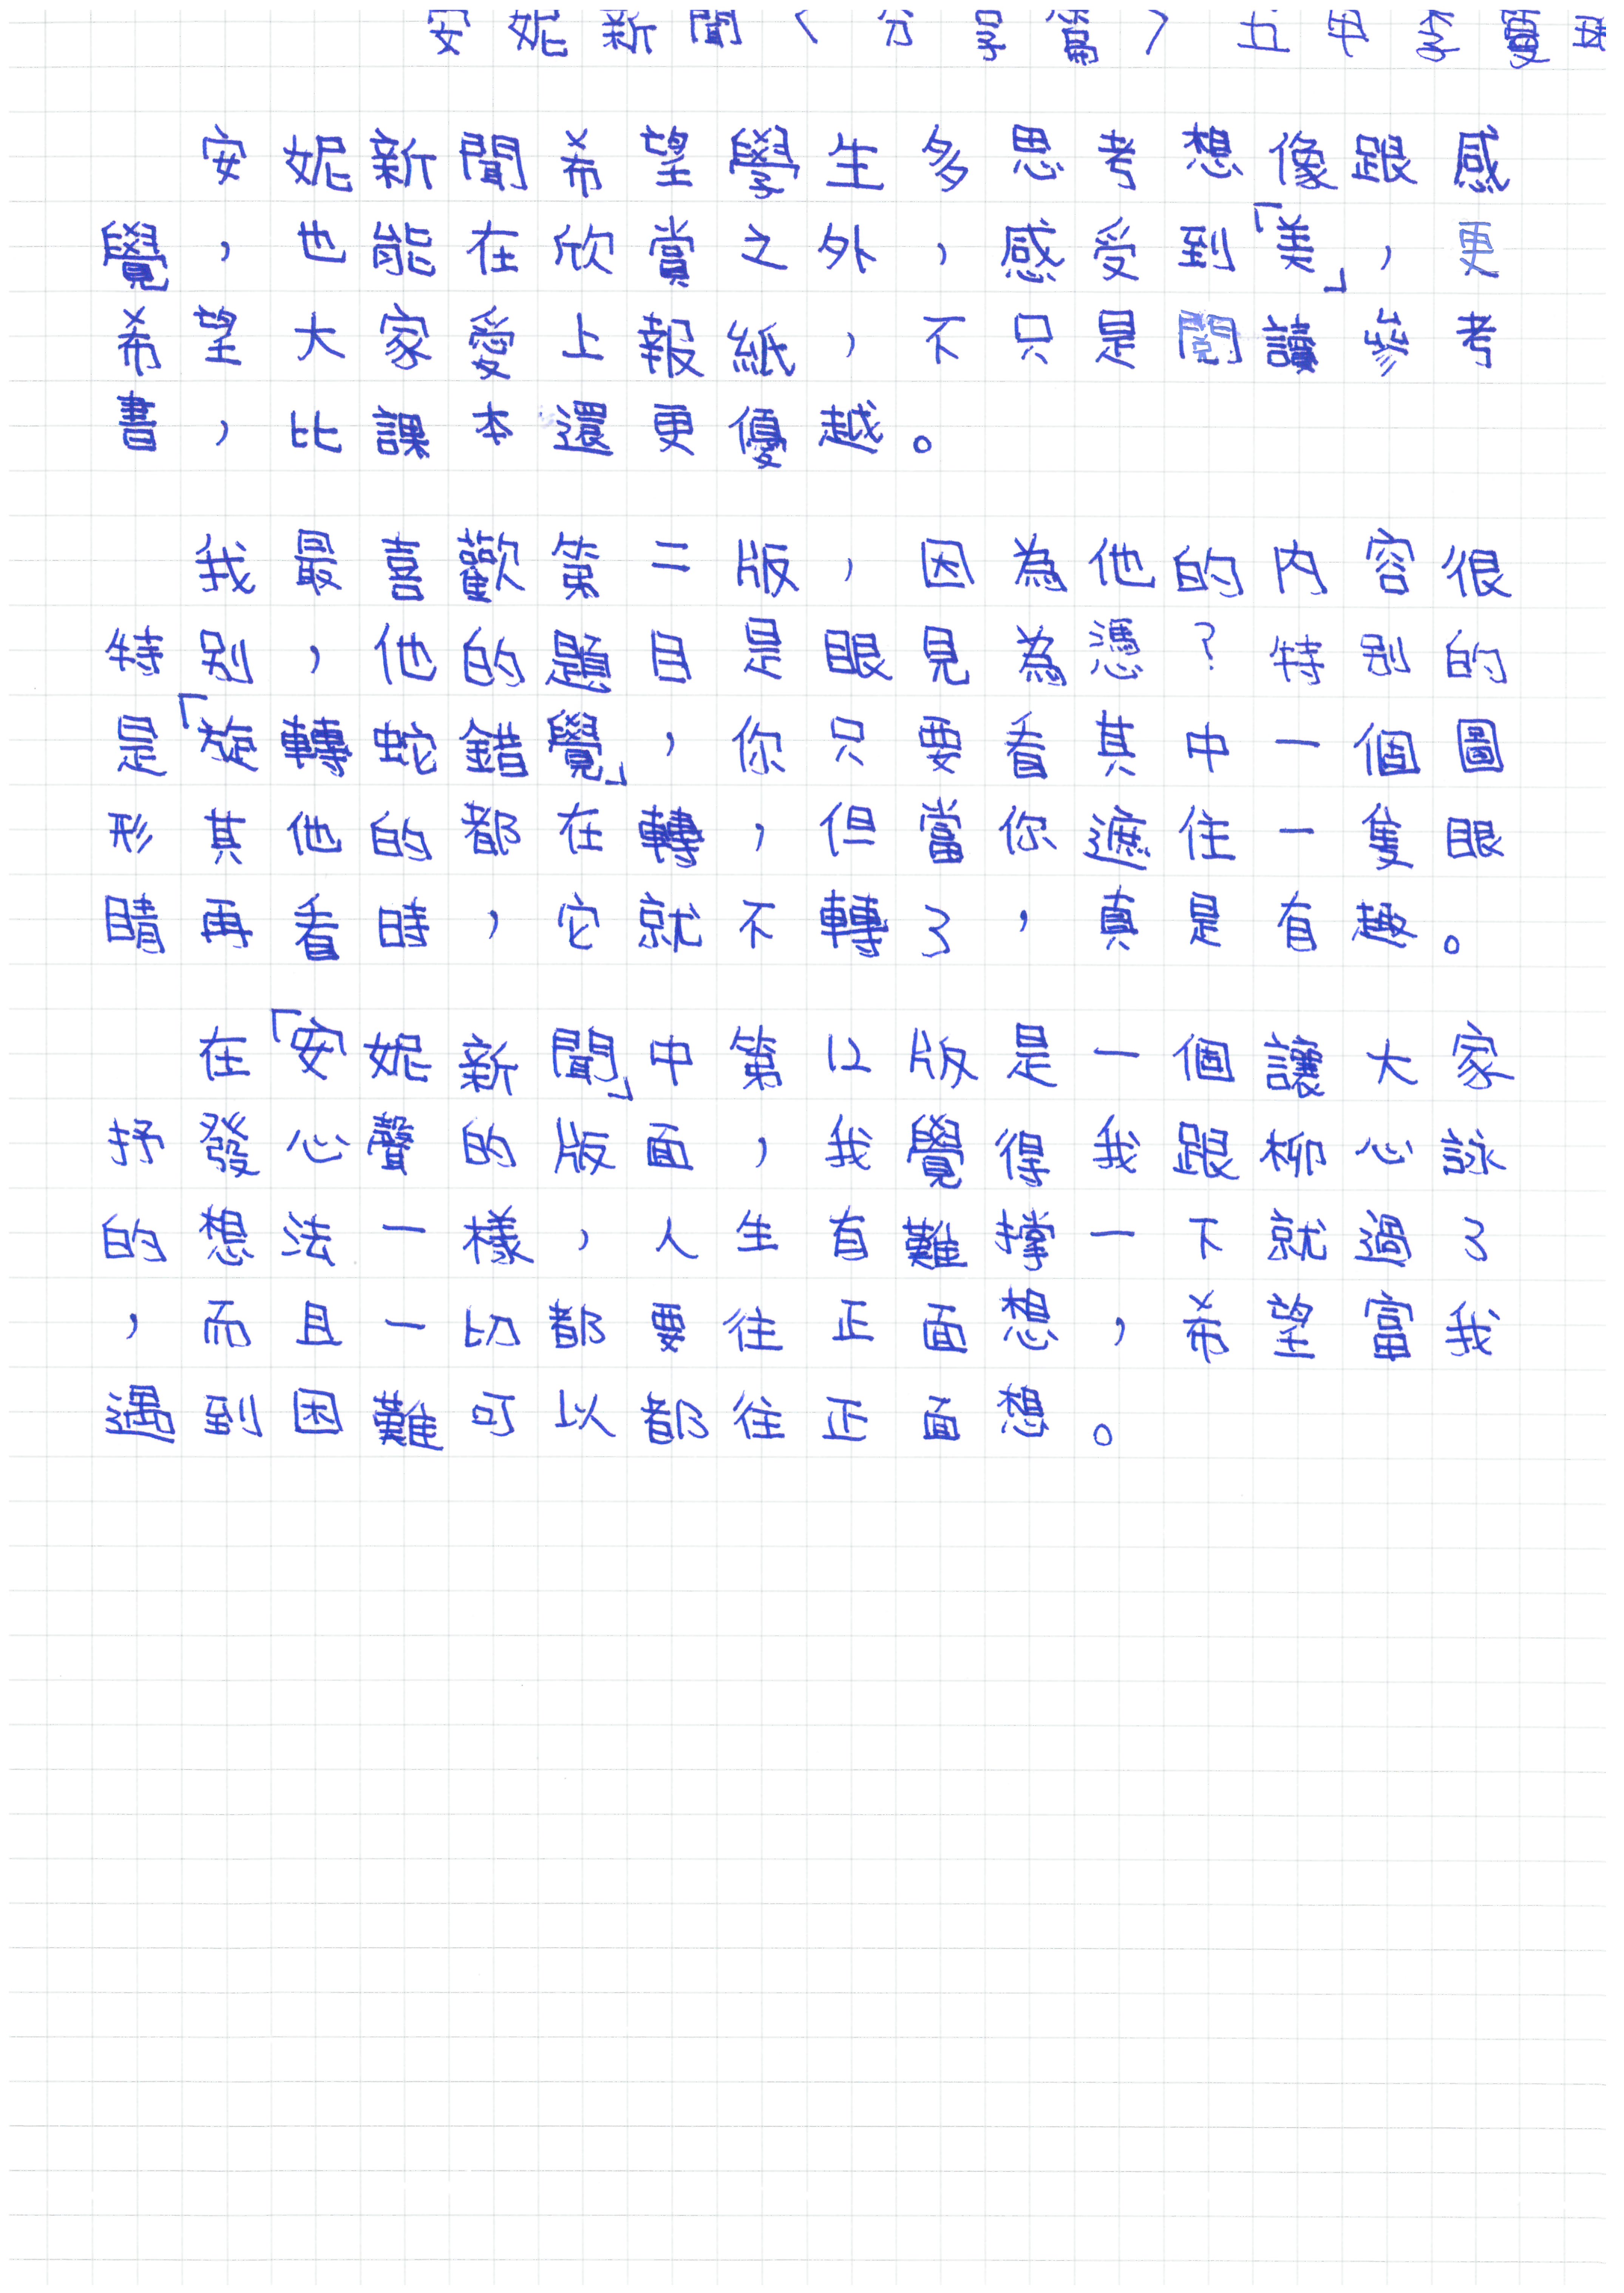 安妮新聞(分享篇)五年李
安妮新聞希望學生多思考想像跟感
覺,也能在欣賞之外,感受到「美」,更
希望大家愛上報紙,不只是閱讀參考
書,比課本還更優越。
我最喜歡第二版,因為他的內容很
特別,他的題目是眼見為憑?特別的
是「旋轉蛇錯覺」,你只要看其中一個圖
形其他的都在轉,但當你遮住一隻眼
睛再看時,它就不轉了,真是有趣。
在「安妮新聞」中第12版是一個讓大家
抒發心聲的版面,我覺得我跟柳心詠
的想法一樣,人生有難撐一下就過了
,而且一切都要往正面想,希望當我
遇到困難可以都往正面想。